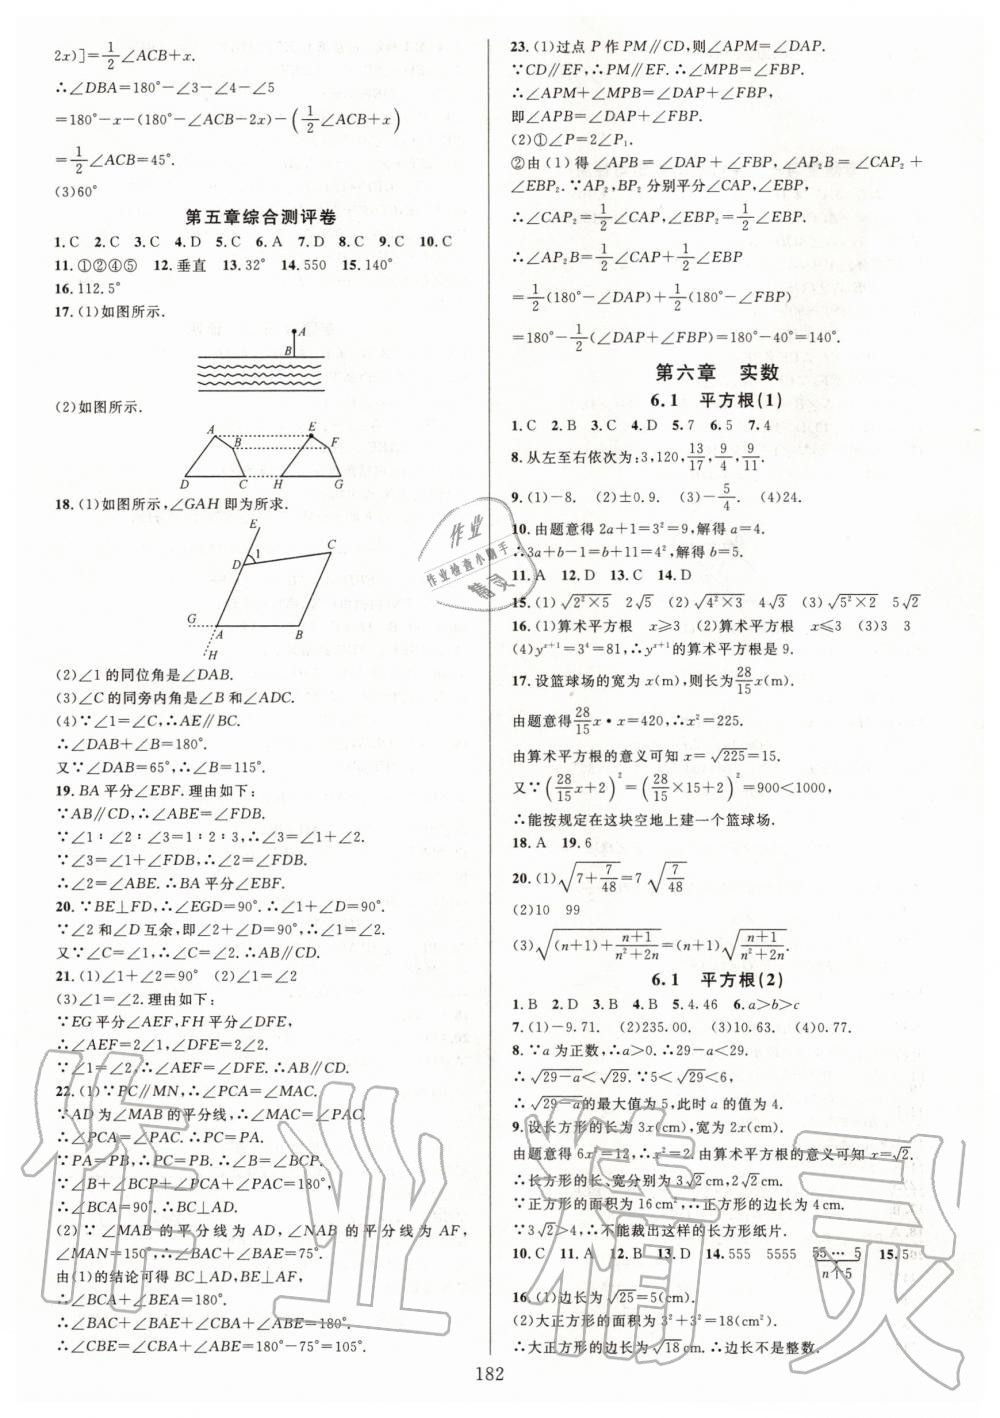 2x)]=1/2∠ACB+x.
∴∠DBA=180°-∠3-∠4-∠5
=180°-x-(180°-∠ACB-2x)-(1/2∠ACB+x)
=1/2∠ACB=45°.
(3)60°
第五章综合测评卷
1.C 2.C 3.C 4.D 5.C 6.A 7.D 8.C 9.C 10.C
11.①②④⑤ 12.垂直 13.32° 14.550 15.140°
16.112.5°
17.(1)如图所示.
A
B
(2)如图所示.
A B E F
D C H G
18.(1)如图所示,∠GAH即为所求.
E
1
D C
G
A B
H
(2)∠1的同位角是∠DAB.
(3)∠C的同旁内角是∠B和∠ADC.
(4)∵∠1=∠C,∴AE∥BC.
∴∠DAB+∠B=180°.
又∵∠DAB=65°,∴∠B=115°.
19.BA平分∠EBF.理由如下:
∵AB∥CD,∴∠ABE=∠FDB.
∵∠1∶∠2∶∠3=1∶2∶3,∴∠3=∠1+∠2.
∵∠3=∠1+∠FDB,∴∠2=∠FDB.
∴∠2=∠ABE.∴BA平分∠EBF.
20.∵BE⊥FD,∴∠EGD=90°.∴∠1+∠D=90°.
∵∠2和∠D互余,即∠2+∠D=90°,∴∠1=∠2.
又∵∠C=∠1,∴∠C=∠2.∴AB∥CD.
21.(1)∠1+∠2=90° (2)∠1=∠2
(3)∠1=∠2.理由如下:
∵EG平分∠AEF,FH平分∠DFE,
∴∠AEF=2∠1,∠DFE=2∠2.
∵∠1=∠2,∴∠AEF=∠DFE.∴AB∥CD.
22.(1)∵PC∥MN,∴∠PCA=∠MAC.
∵AD为∠MAB的平分线,∴∠MAC=∠PAC.
∴∠PCA=∠PAC.∴PC=PA.
∵PA=PB,∴PC=PB.∴∠B=∠BCP.
∵∠B+∠BCP+∠PCA+∠PAC=180°,
∴∠BCA=90°.∴BC⊥AD.
(2)∵∠MAB的平分线为AD,∠NAB的平分线为AF,
∠MAN=150°,∴∠BAC+∠BAE=75°.
由(1)的结论可得BC⊥AD,BE⊥AF,
∴∠BCA+∠BEA=180°.
∴∠BAC+∠BAE+∠CBA+∠ABE=180°.
∴∠CBE=∠CBA+∠ABE=180°-75°=105°.
23.(1)过点P作PM∥CD,则∠APM=∠DAP.
∵CD∥EF,∴PM∥EF.∴∠MPB=∠FBP.
∴∠APM+∠MPB=∠DAP+∠FBP,
即∠APB=∠DAP+∠FBP.
(2)①∠P=2∠P₁.
②由(1)得∠APB=∠DAP+∠FBP,∠AP₂B=∠CAP₂+
∠EBP₂.∵AP₂,BP₂分别平分∠CAP,∠EBP,
∴∠CAP₂=1/2∠CAP,∠EBP₂=1/2∠EBP.
∴∠AP₂B=1/2∠CAP+1/2∠EBP
=1/2(180°-∠DAP)+1/2(180°-∠FBP)
=180°-1/2(∠DAP+∠FBP)=180°-40°=140°.
第六章 实数
6.1 平方根(1)
1.C 2.B 3.C 4.D 5.7 6.5 7.4
8.从左至右依次为:3,120,13/17,9/4,9/11.
9.(1)-8. (2)±0.9. (3)-5/4. (4)24.
10.由题意得2a+1=3²=9,解得a=4.
∴3a+b-1=b+11=4²,解得b=5.
11.A 12.D 13.C 14.D
15.(1)√(2²×5) 2√5 (2)√(4²×3) 4√3 (3)√(5²×2) 5√2
16.(1)算术平方根 x≥3 (2)算术平方根 x≤3 (3)3 3
(4)yˣ⁺¹=3⁴=81,∴yˣ⁺¹的算术平方根是9.
17.设篮球场的宽为x(m),则长为28/15x(m).
由题意得28/15x•x=420,∴x²=225.
由算术平方根的意义可知x=√225=15.
又∵(28/15x+2)²=(28/15×15+2)²=900<1000,
∴能按规定在这块空地上建一个篮球场.
18.A 19.6
20.(1)√(7+7/48)=7√(7/48)
(2)10 99
(3)√((n+1)+(n+1)/(n²+2n))=(n+1)√((n+1)/(n²+2n)).
6.1 平方根(2)
1.B 2.D 3.B 4.B 5.4.46 6.a>b>c
7.(1)-9.71. (2)235.00. (3)10.63. (4)0.77.
8.∵a为正数,∴a>0.∴29-a<29.
∴√(29-a)<√29.∵5<√29<6,
∴√(29-a)的最大值为5,此时a的值为4.
9.设长方形的长为3x(cm),宽为2x(cm).
由题意得6x²=12,∴x²=2.由算术平方根的意义可知x=√2.
∴长方形的长、宽分别为3√2cm,2√2cm.
∵正方形的面积为16cm²,∴正方形的边长为4cm.
∵3√2>4,∴不能裁出这样的长方形纸片.
10.C 11.A 12.B 13.D 14.555 5555 55…5 15.5
n个5
16.(1)边长为√25=5(cm).
(2)大正方形的面积为3²+3²=18(cm²).
∴大正方形的边长为√18cm.∴边长不是整数.
182
作业
作业检查小助手
精灵
作业精灵